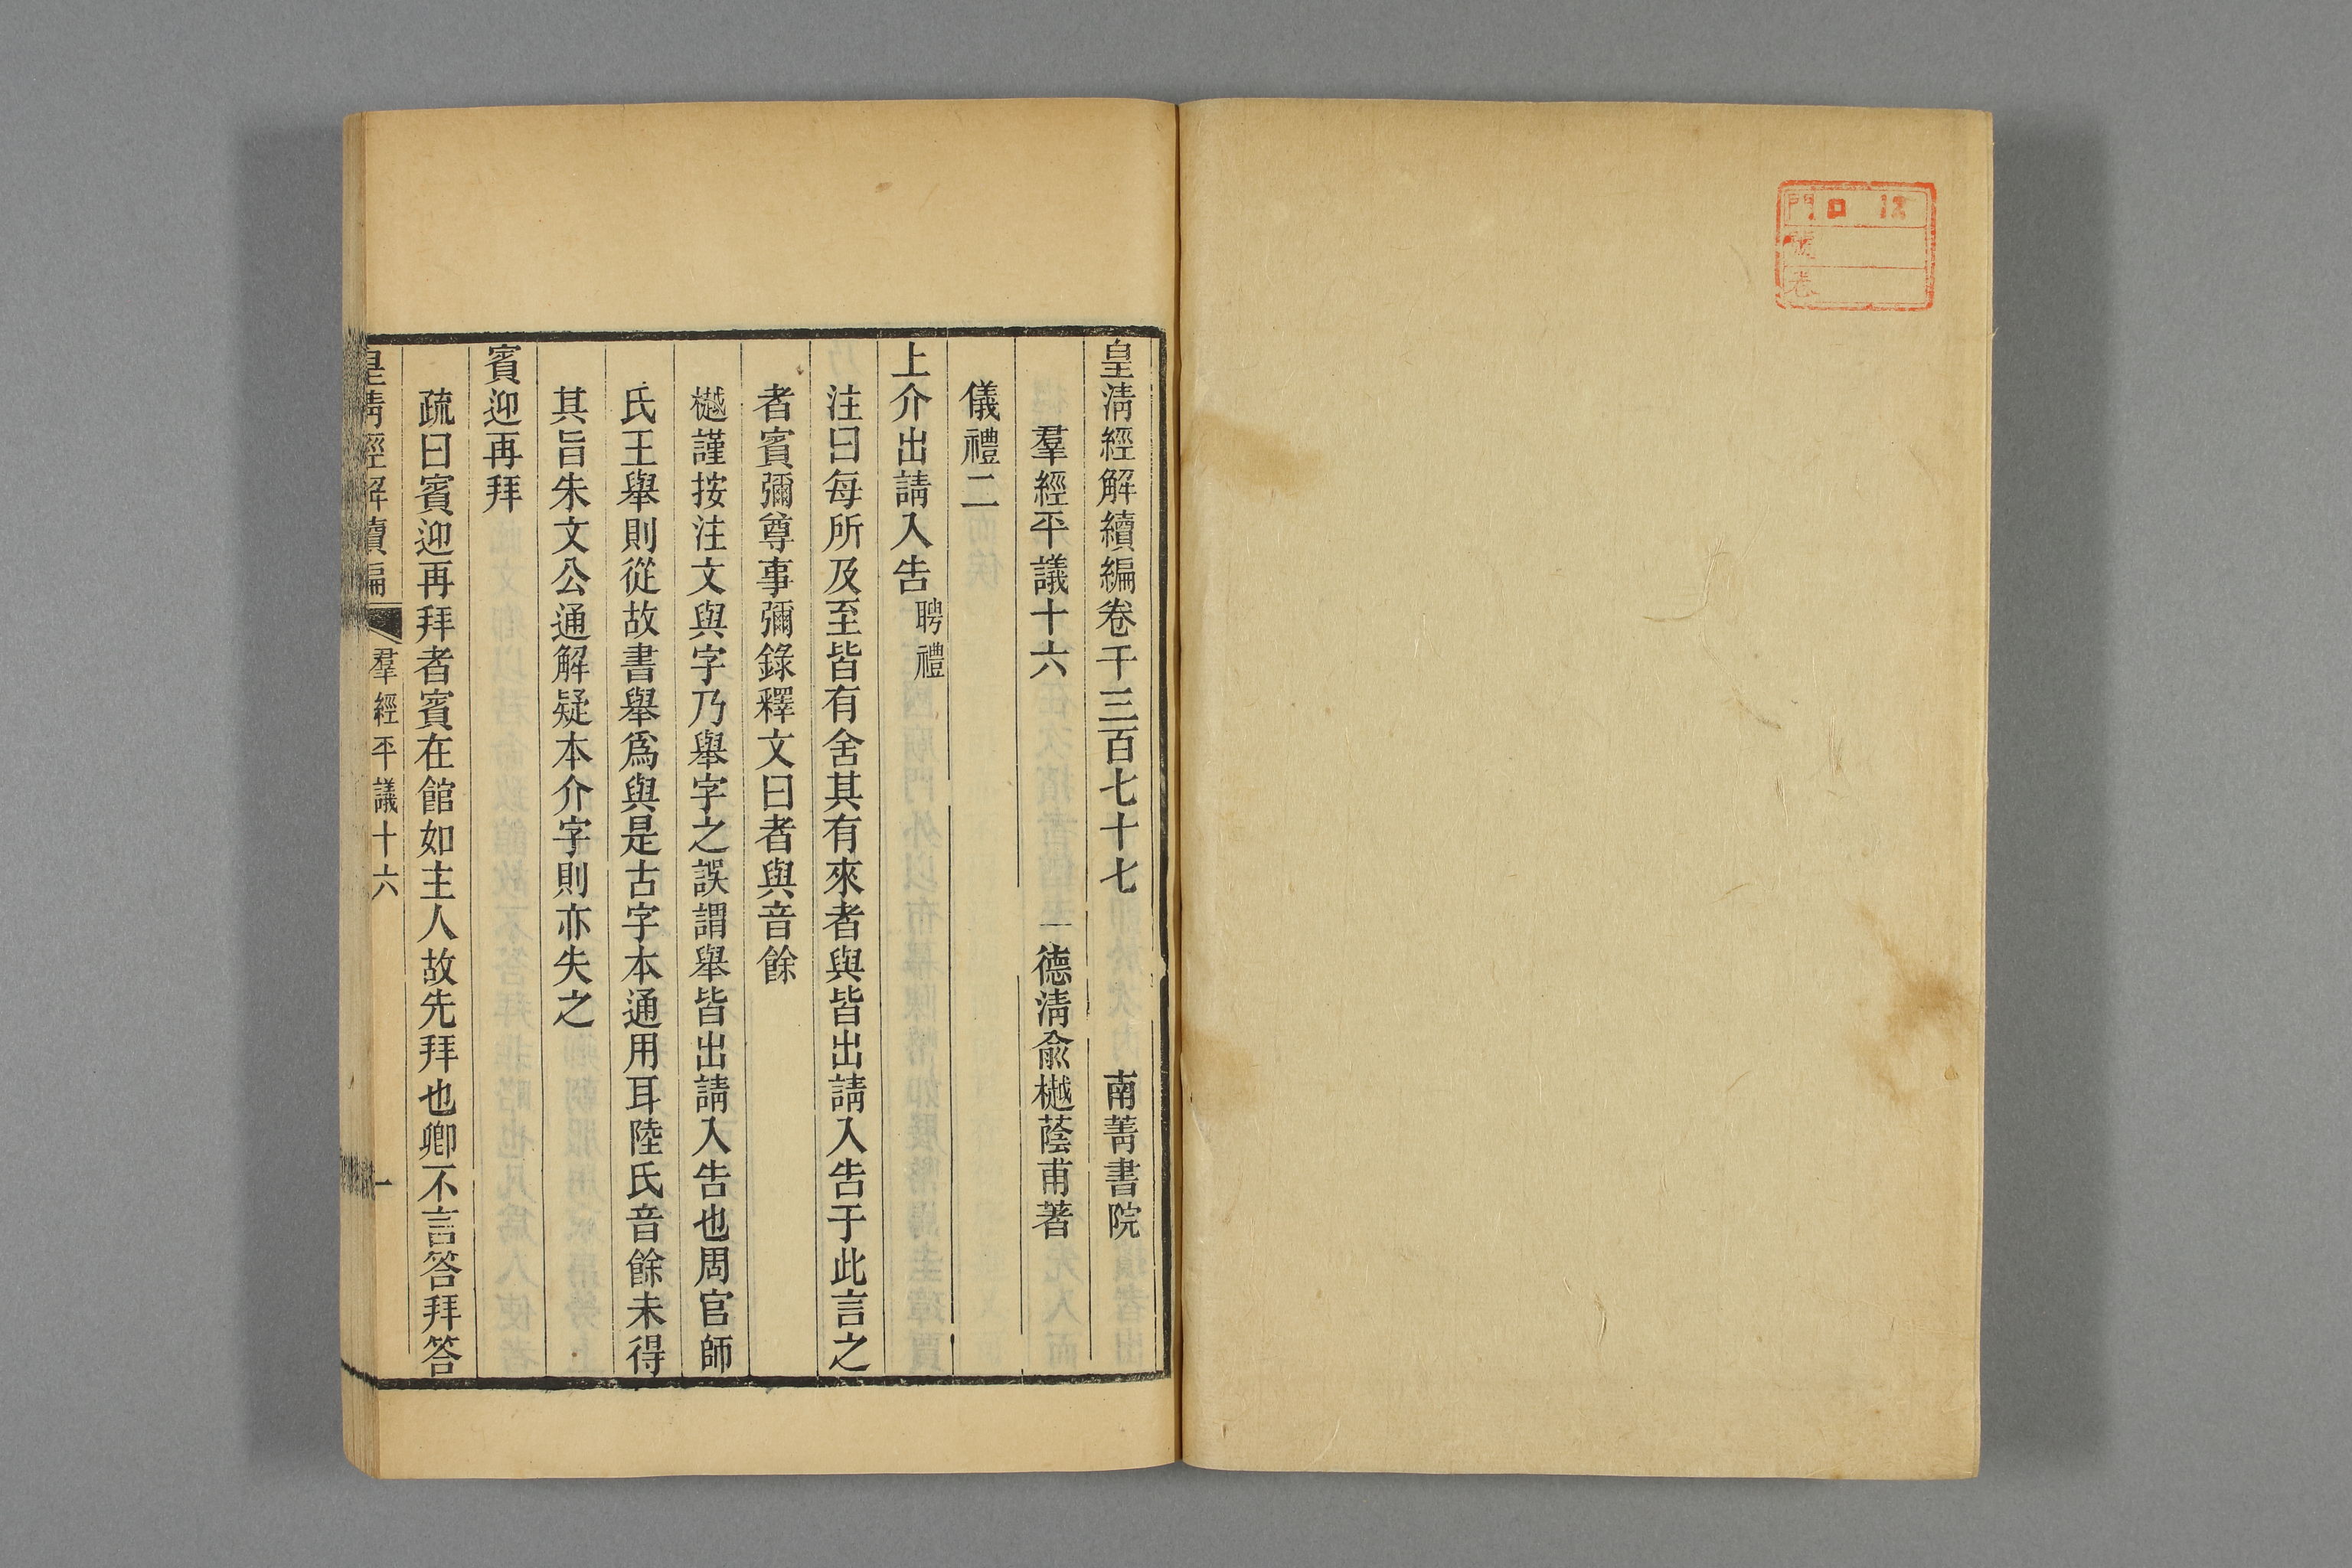 門 ロ 12
號
卷
皇淸經解續編卷千三百七十七 南菁書院
羣經平議十六 德淸俞樾蔭甫著
儀禮二
上介出請入告聘禮
注曰每所及至皆有舍其有來者與皆出請入告于此言之
者賓彌尊事彌錄釋文曰者與音餘
樾謹按注文與字乃舉字之誤謂舉皆出請入告也周官師
氏王舉則從故書舉爲與是古字本通用耳陸氏音餘未得
其旨朱文公通解疑本介字則亦失之
賓迎再拜
疏曰賓迎再拜者賓在館如主人故先拜也卿不言答拜答
皇淸經解續編 羣經平議十六 一